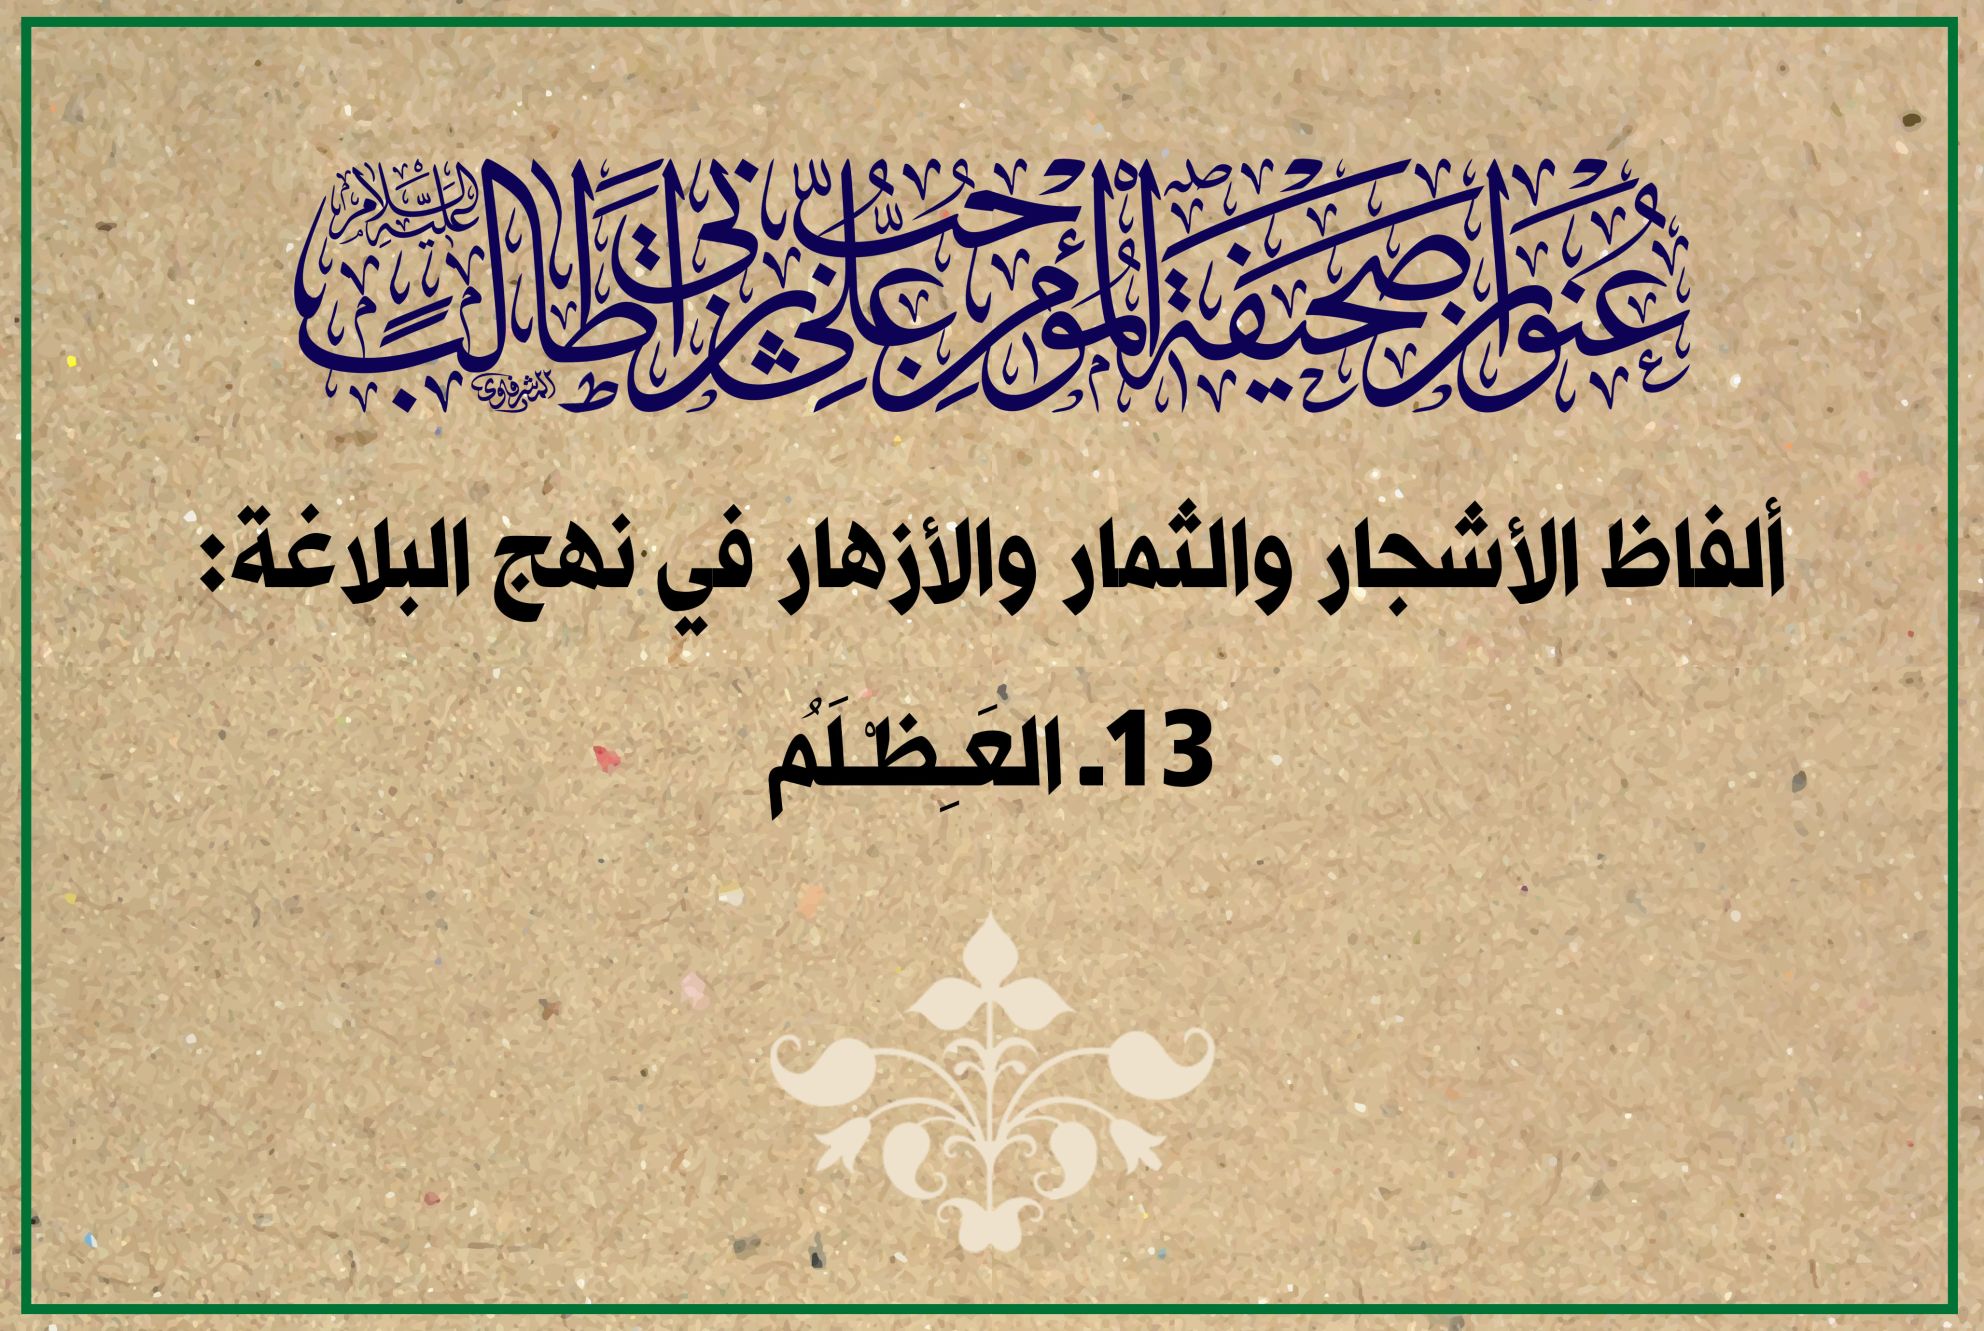 عنوان صحيفة المؤمن حب علي بن أبي طالب عليه السلام
الشرفاوي
ألفاظ الأشجار والثمار والأزهار في نهج البلاغة:
13ـ العَـِظْـلَمُ